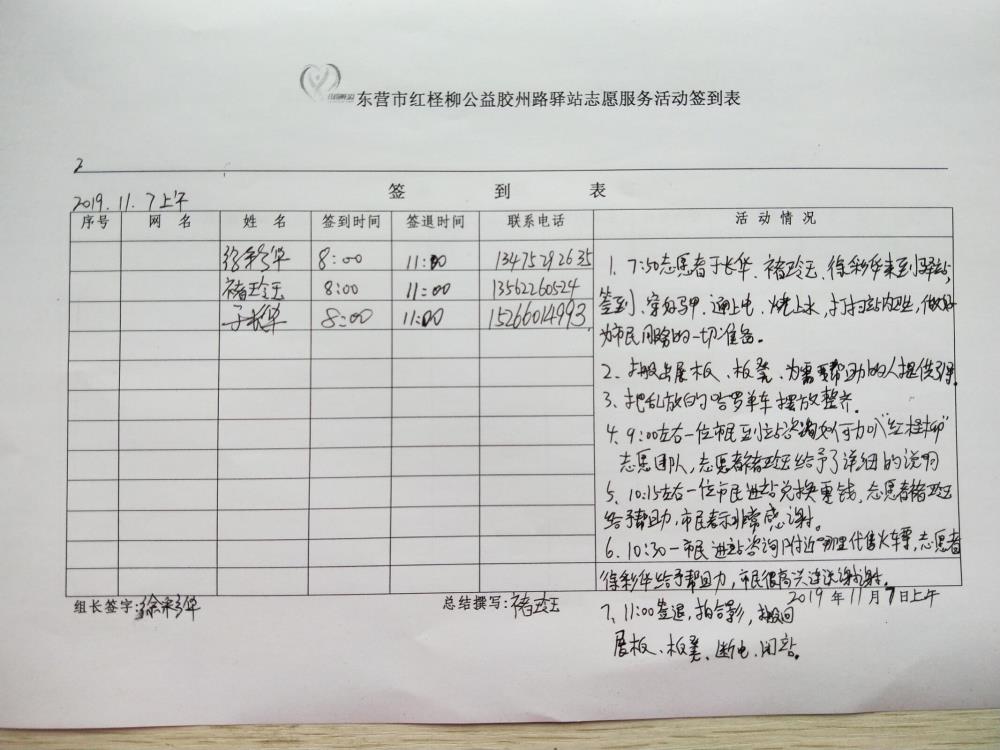 东营市红柽柳公益胶州路驿站志愿服务活动签到表
2
2019.11.7上午
签 到 表
序号 网 名 姓 名 签到时间 签退时间 联系电话 活 动 情 况
徐彩华 8:00 11:00 13475292635
褚玲玉 8:00 11:00 13562260524
于长华 8:00 11:00 15266014993
1、7:50志愿者于长华、褚玲玉、徐彩华来到驿站,
签到、穿好马甲、通上电、烧上水,打扫站内卫生,做好
为市民服务的一切准备。
2、搬出展板、板凳、为需要帮助的人提供
3、把乱放的哈罗单车摆放整齐。
4、9:00左右一位市民到站咨询如何加入“红柽柳”
志愿团队,志愿者褚玲玉给予了详细的说明
5、10:15左右一位市民进站兑换零钱,志愿者褚玲玉
给予帮助,市民表示非常感谢。
6、10:30一市民进站咨询附近哪里代售火车票,志愿者
徐彩华给予帮助,市民很高兴连说谢谢。
组长签字:徐彩华 总结撰写:褚玲玉 2019年11月7日上午
7、11:00签退,拍合影,搬回
展板、板凳、断电、闭站。